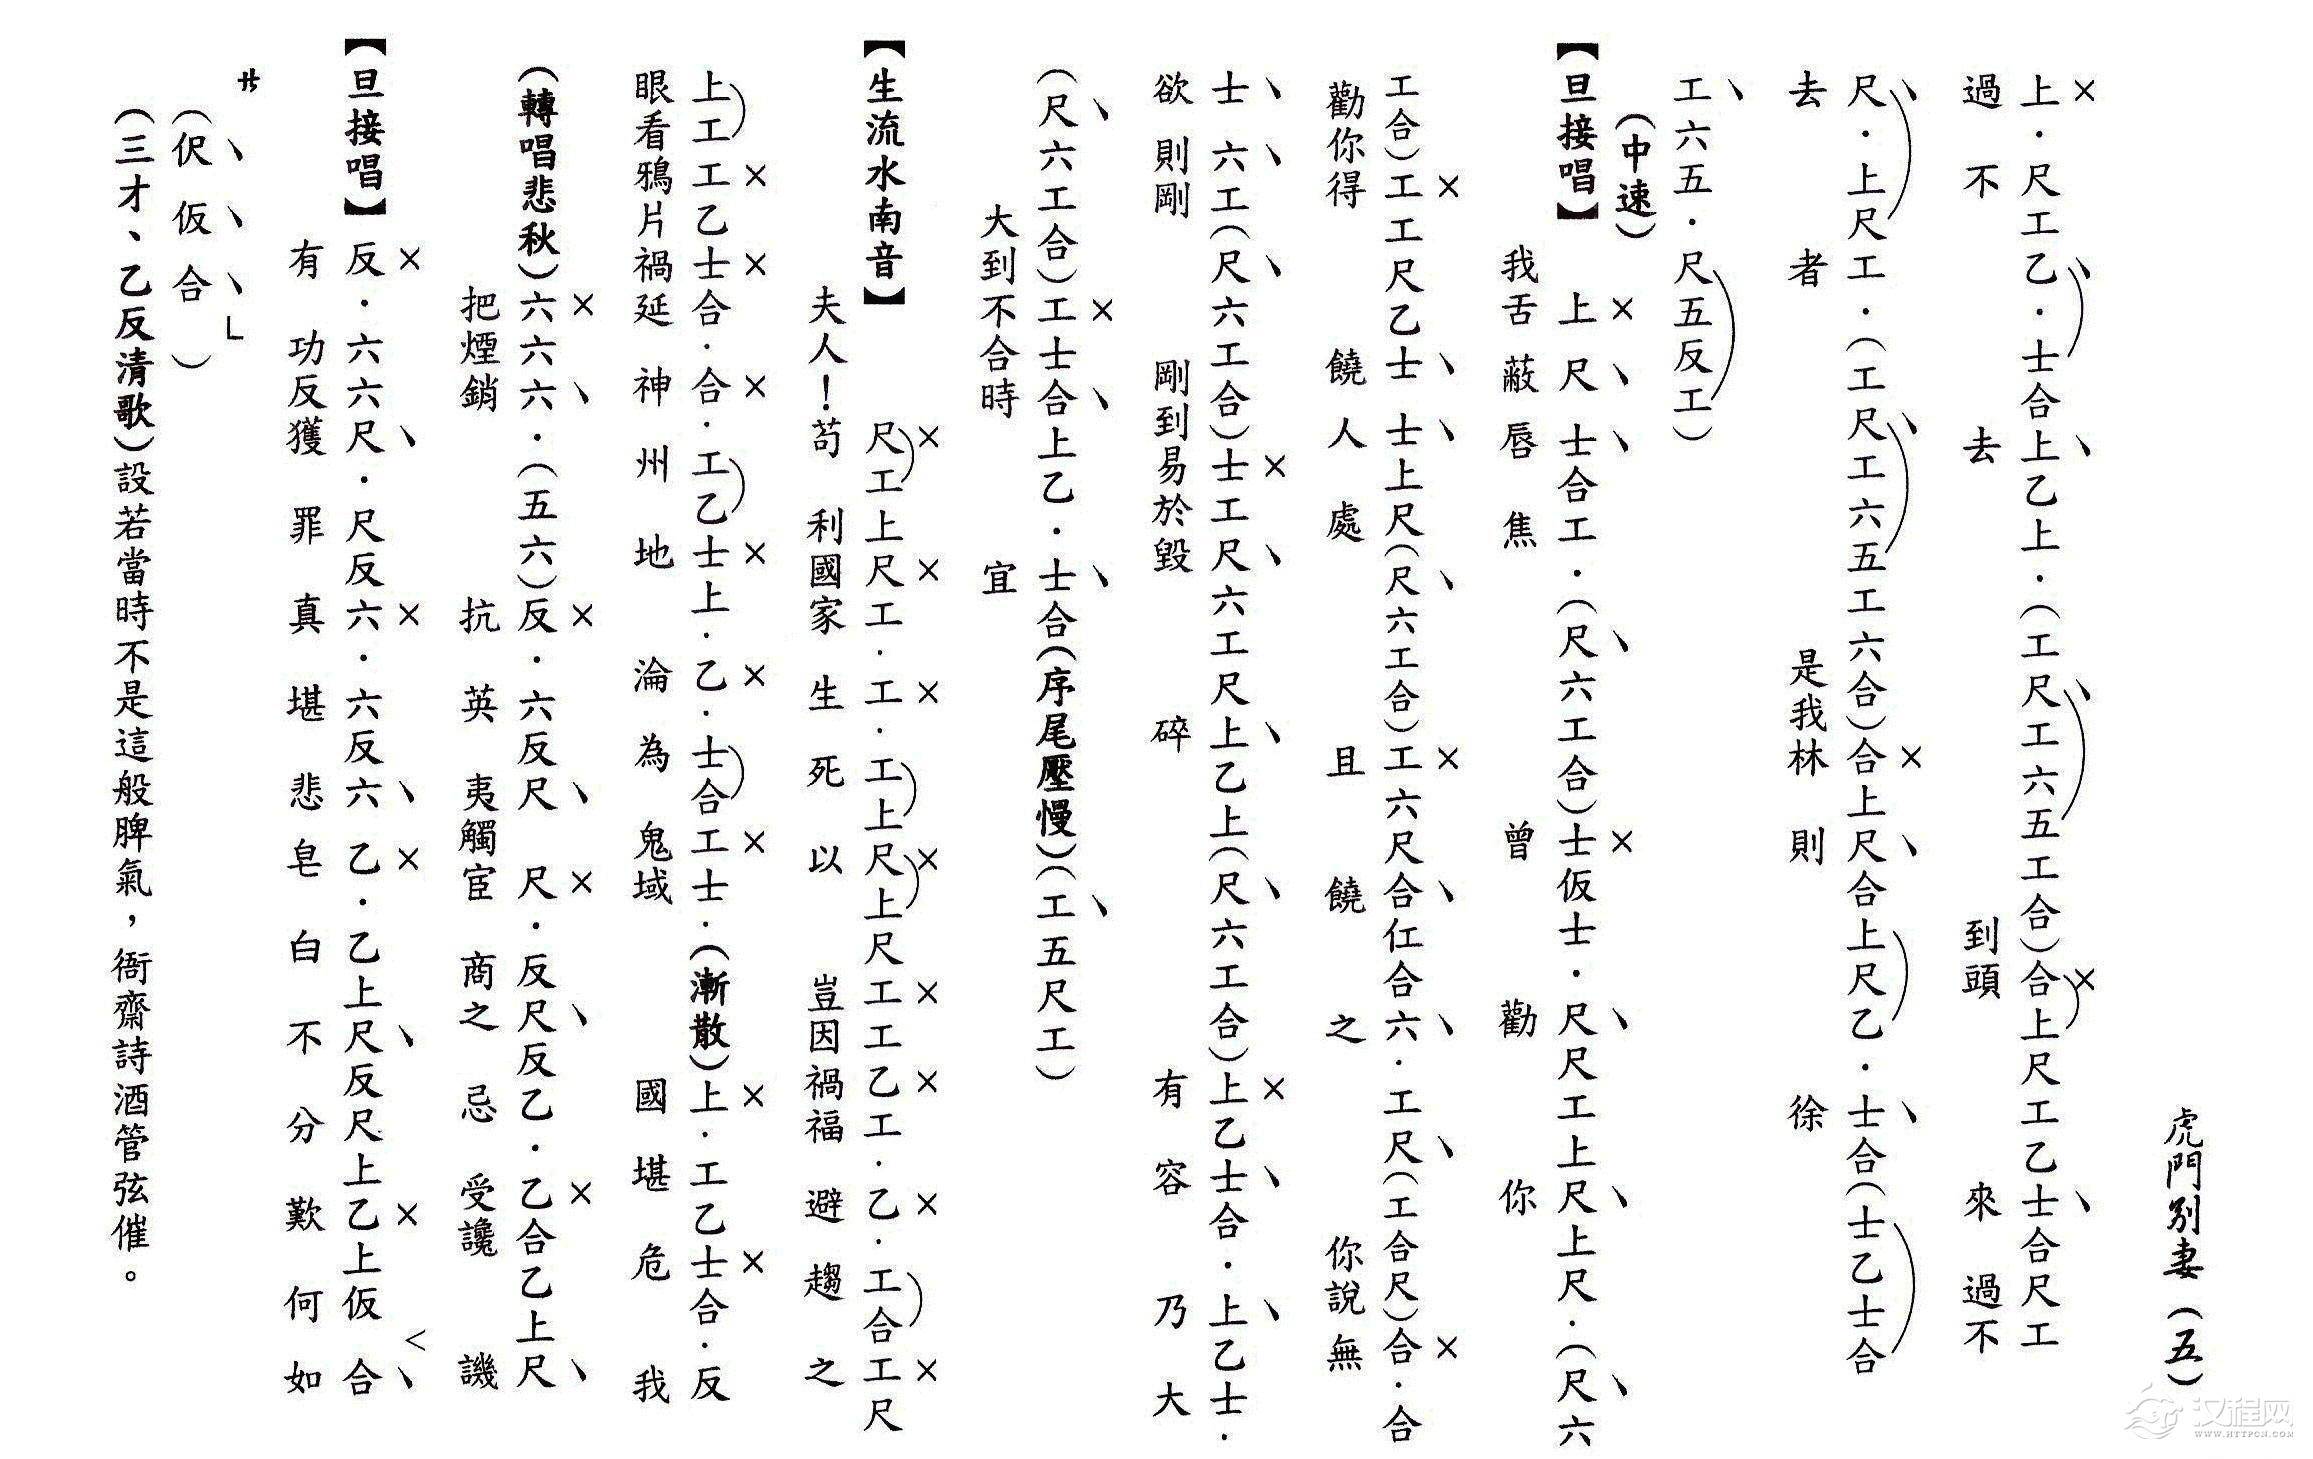 虎門別妻(五)
上·尺工乙·士合上乙上·(工尺工六五工合)合上尺工乙士合尺工
過不去到頭來過不
尺·上尺工·(工尺工六五工六合)合上尺合上尺乙·士合(士乙士合
去者是我林則徐
工六五·尺五反工)
(中速)
【旦接唱】上尺士合工·(尺六工合)士仮士·尺尺工上尺上尺·(尺六
我舌蔽唇焦曾勸你
工合)工工尺乙士士上尺(尺六工合)工六尺合仁合六·工尺(工合尺)合·合
勸你得饒人處且饒之你說無
士六工(尺六工合)士工尺六工尺上乙上(尺六工合)上乙士合·上乙士·
欲則剛剛到易於毀碎有容乃大
(尺六工合)工士合上乙·士合(序尾壓慢)(工五尺工)
大到不合時宜
【生流水南音】尺工上尺工·工·工上尺上尺工工乙工·乙·工合工尺
夫人!苟利國家生死以豈因禍福避趨之
上工工乙士合·合·工乙士上·乙·士合工士·(漸散)上·工乙士合·反
眼看鴉片禍延神州地淪為鬼域國堪危我
(轉唱悲秋)六六六·(五六)反·六反尺尺·反尺反乙·乙合乙上尺
把煙銷抗英夷觸宦商之忌受讒譏
【旦接唱】反·六六尺·尺反六·六反六乙·乙上尺反尺上乙上仮合
有功反獲罪真堪悲皂白不分歎何如
(伬仮合)
(三才、乙反清歌)設若當時不是這般脾氣,衙齋詩酒管弦催。
汉程网
WWW.HTTPCN.COM